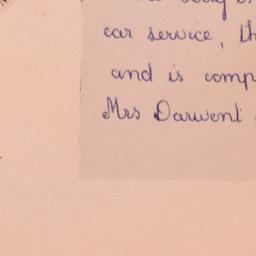 car service, th
and is comp
Mrs Darwent